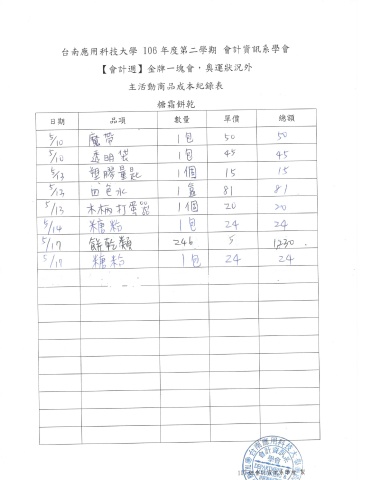 台南應用科技大學 106 年度第二學期 會計資訊系學會
【會計週】金牌一塊會，奧運狀況外
主活動商品成本紀錄表
糖霜餅乾
日期 品項 數量 單價 總額
5/10 魔帶 1包 50 50
5/10 透明袋 1包 45 45
5/13 塑膠量匙 1個 15 15
5/13 四色水 1盒 81 81
5/13 木柄打蛋器 1個 20 20
5/14 糖粉 1包 24 24
5/17 餅乾類 246 5 1230
5/17 糖粉 1包 24 24
台南應用科技大學
會計資訊系
學會